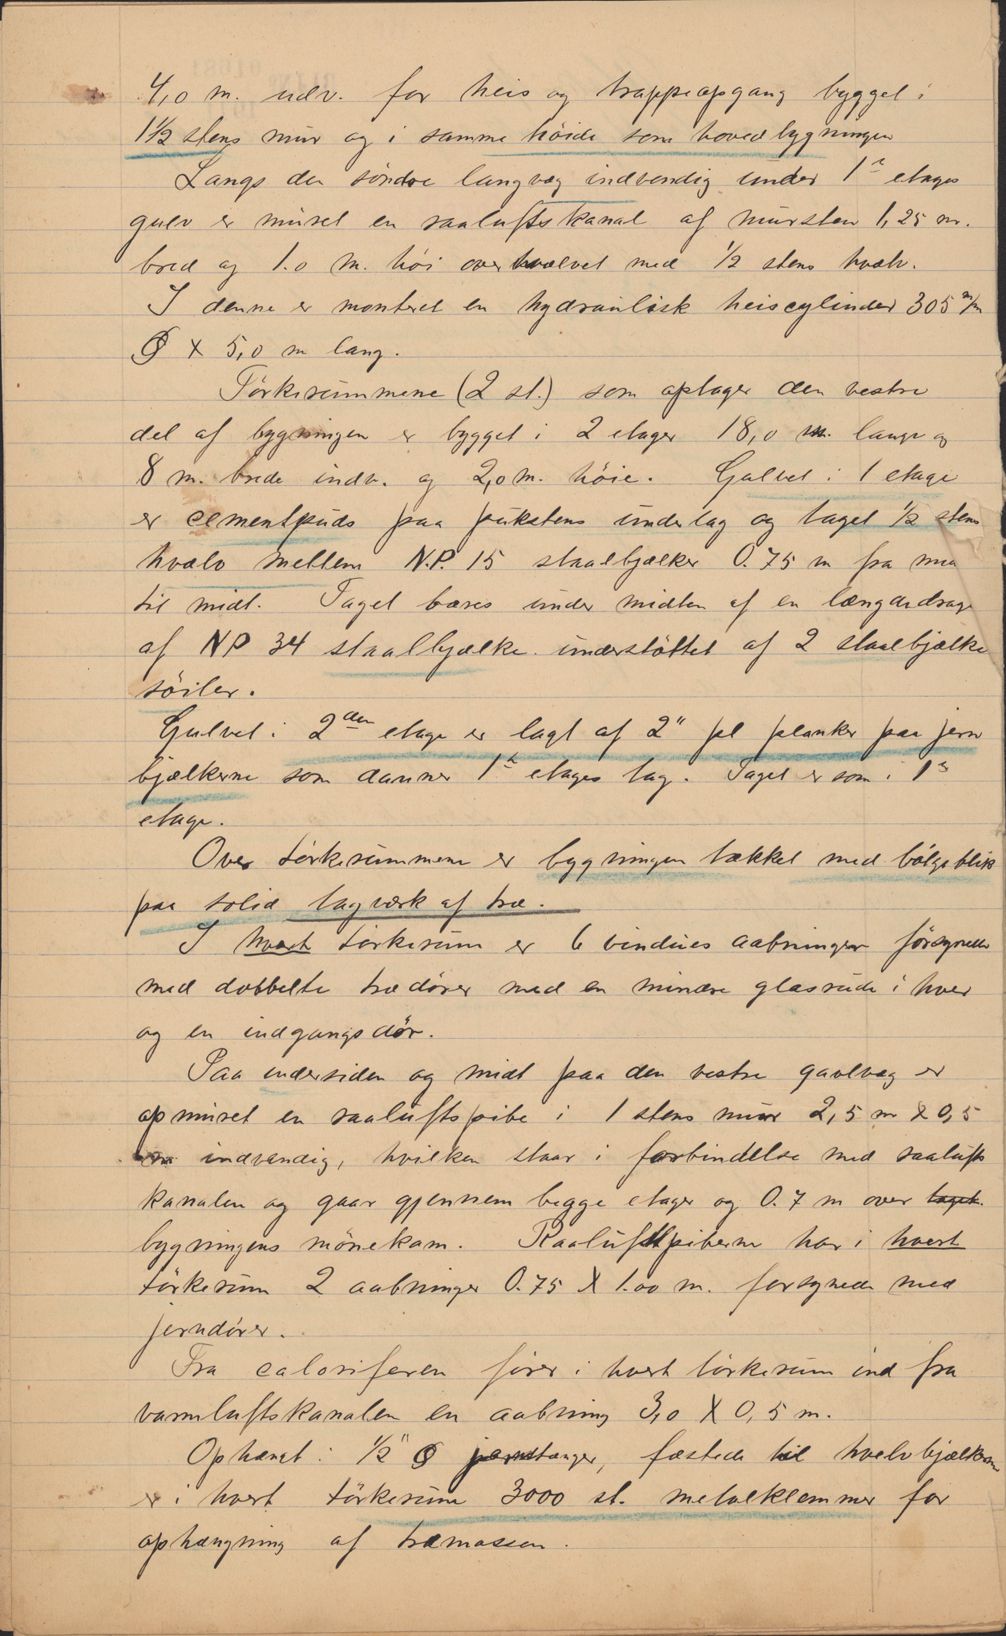 4,0 m. udv. for heis og trappeopgang bygget i
1½ stens mur og i samme høide som hovedbygningen
Langs den søndre langvæg indvendig under 1ste etages
gulv er muret en raaluftskanal af mursten 1,25 m.
bred og 1.0 m. høi overhvælvet med ½ stens hvælv.
I denne er monteret en hydraulisk heiscylinder 305 m/m
Ø X 5,0 m lang.
Tørkerummene (2 st.) som optager den vestre
del af bygningen er bygget i 2 etager 18,0 m. lange og
8 m. brede indv. og 2,0 m. høie. Gulvet i 1 etage
er cementpuds paa pukstens underlag og taget ½ stens
hvælv mellem N.P. 15 staalbjælker 0.75 m fra midt
til midt. Taget bæres under midten af en længdedrager
af NP 34 staalbjælke understøttet af 2 staalbjælke
søiler.
Gulvet i 2den etage er lagt af 2" pl planker paa jern
bjælkerne som danner 1ste etages tag. Taget er som i 1ste
etage.
Over tørkerummene er bygningen tækket med bølgeblik
paa solid tagværk af træ.
I hvert tørkerum er 6 vindues aabninger forsynede
med dobbelte trædører med en mindre glasrude i hver
og en indgangsdør.
Paa ydersiden og midt paa den vestre gavlvæg er
opmuret en raaluftspibe i 1 stens mur 2,5 m X 0,5
m indvendig, hvilken staar i forbindelse med raalufts
kanalen og gaar gjennem begge etager og 0.7 m over taget
bygningens mønekam. Raaluftpiberne har i hvert
tørkerum 2 aabninger 0.75 X 1.00 m. forsynede med
jerndører.
Fra caloriferen fører i hvert tørkerum ind fra
varmluftskanalen en aabning 3,0 X 0,5 m.
Ophængt i ½" Ø jernstænger, fæstede til hvælvbjælkerne
er i hvert tørkerum 3000 st. metalklemmer for
ophængning af træmassen.